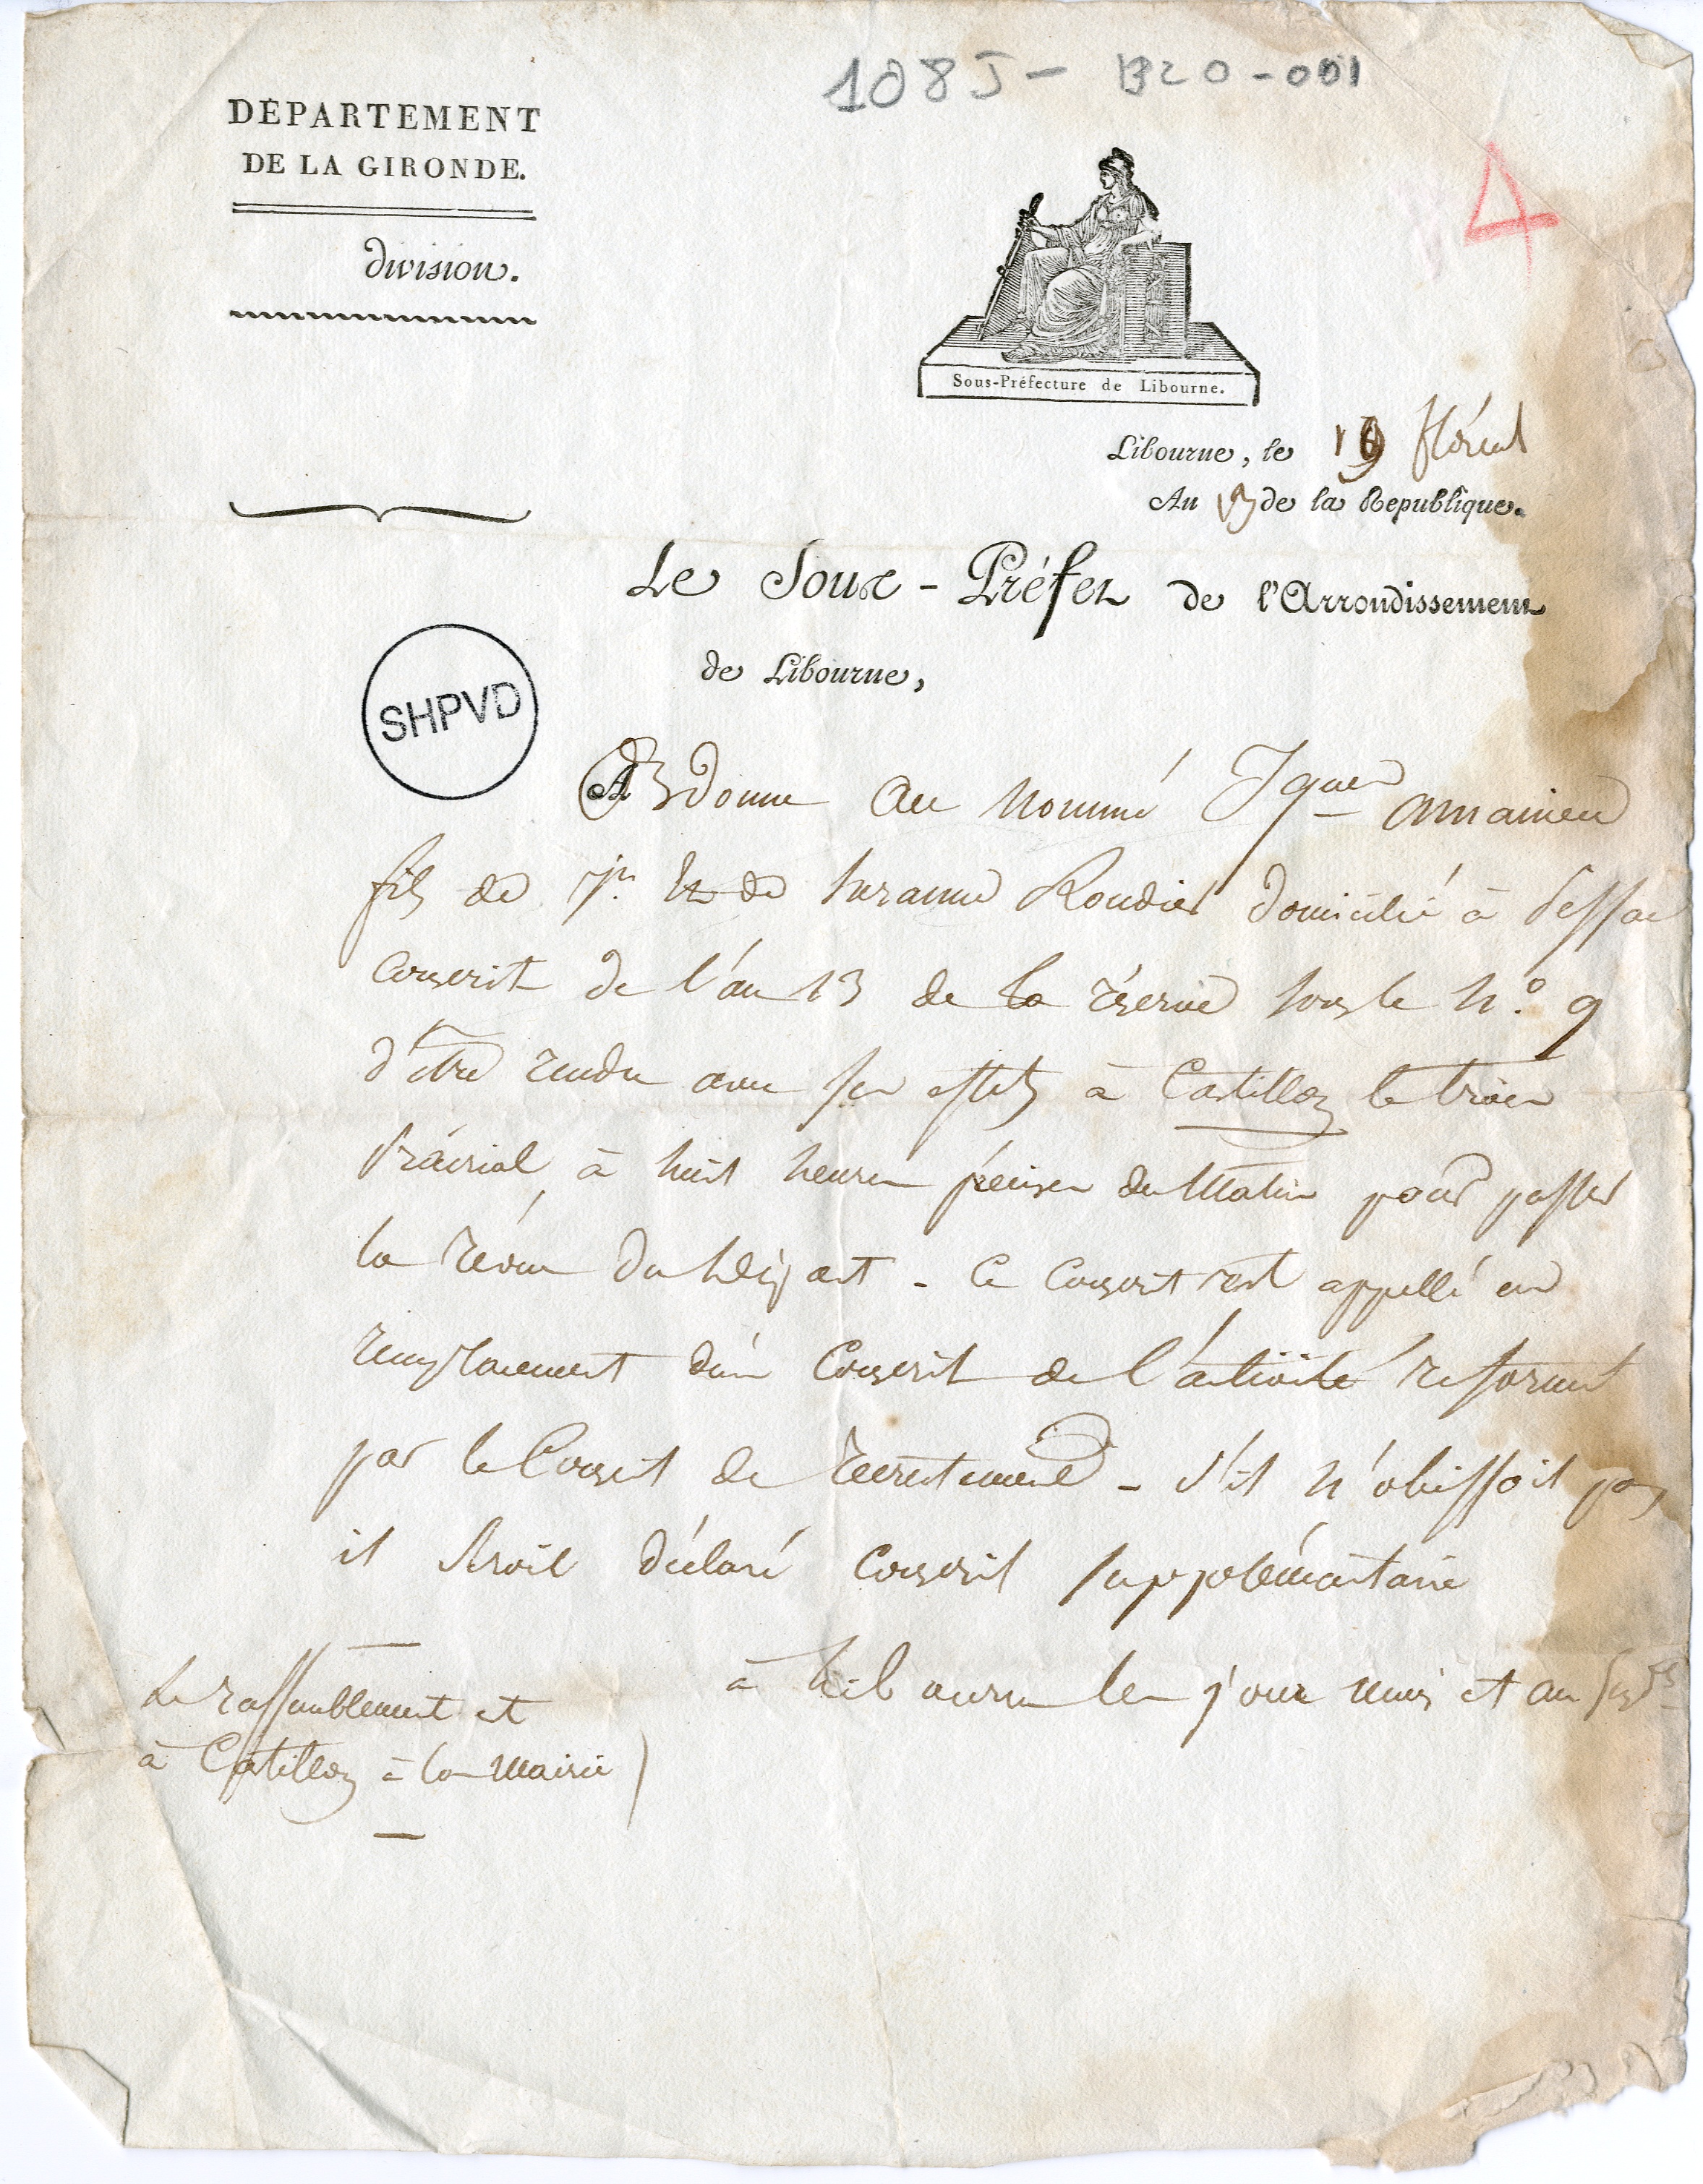 108 J - B20 - 001
DÉPARTEMENT
DE LA GIRONDE.
4
division.
Sous-Préfecture de Libourne.
Libourne, le 19 floréal
An 13 de la Republique.
Le Sous-Préfet de l'Arrondissement
de Libourne,
SHPVD
donne au nommé Jques amanieu
fils de Jn et de suzanne Roudier domicilié à Pessac
conscrit de l'an 13 de la réserve sous le n.º 9
d'être rendu avec ses effets à Castillon le trois
Prairial à huit heures précises du Matin pour passer
la révue du départ - Ce conscrit est appellé en
remplacement d'un conscrit de l'activité réformé
par le Conseil de recrutement - s'il n'obeissoit pas
il seroit déclaré conscrit supplémentaire
à Libourne les jour mois et an susds
Le rassemblement est
à Castillon à la Mairie